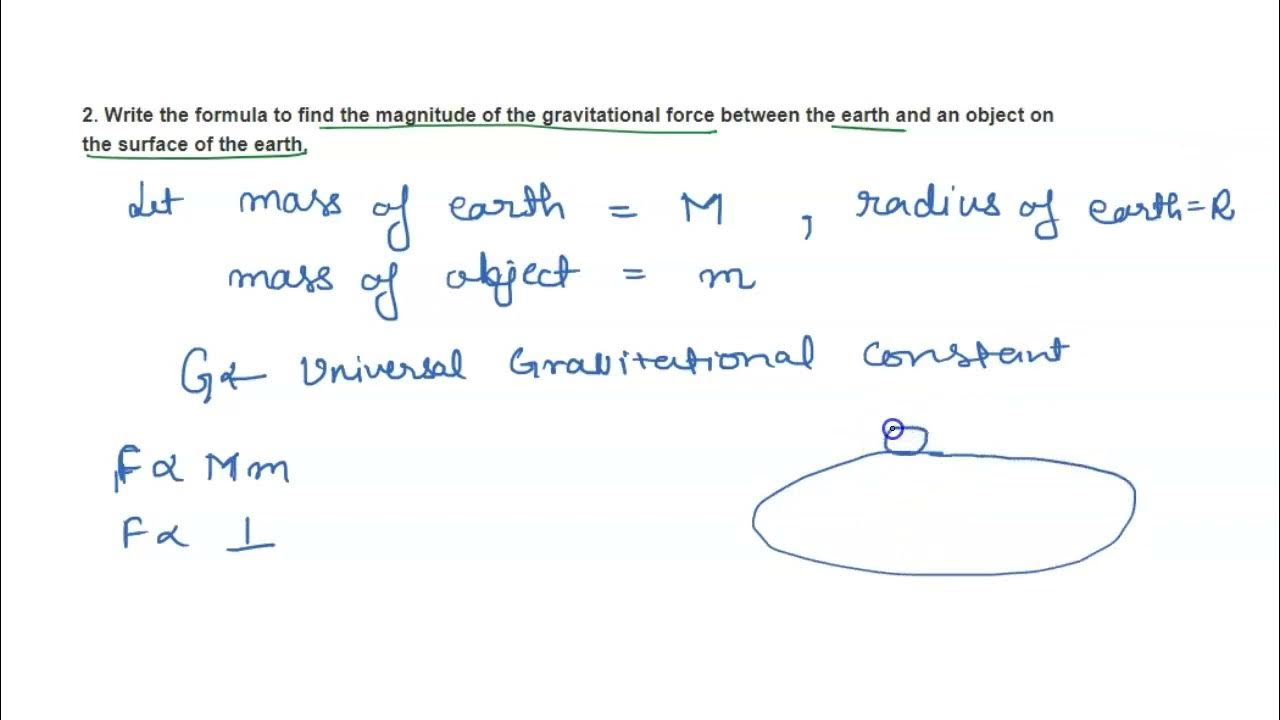 2. Write the formula to find the magnitude of the gravitational force between the earth and an object on
the surface of the earth.
Let mass of earth = M , radius of earth = R
mass of object = m
G ← Universal Gravitational constant
F ∝ Mm
F ∝ 1